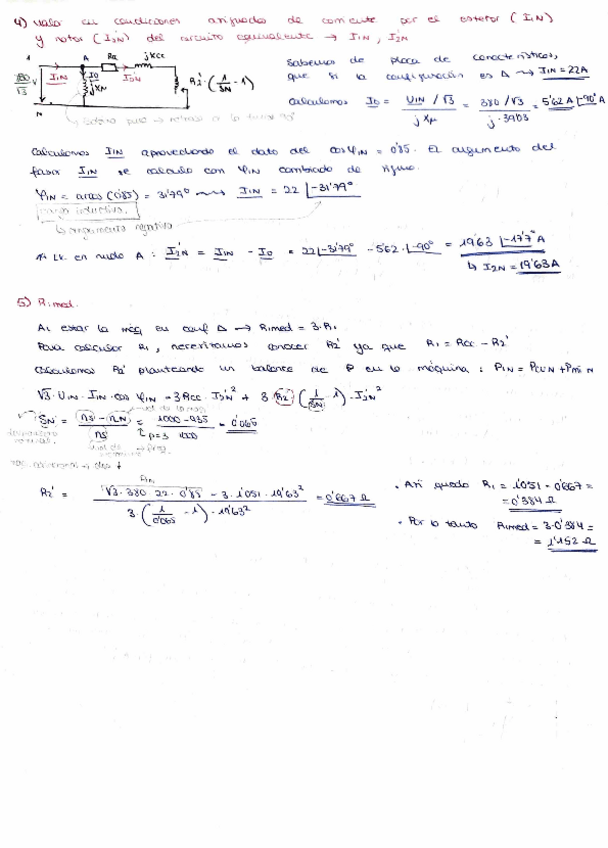 4) Valor en condiciones asignadas de corriente por el estator (I1N)
y rotor (I2N') del circuito equivalente → I1N, I2N'
1 A Rcc jXcc
380/√3 V I1N I0 jXμ I2N' R2'·(1/SN - 1)
N
Sabemos de placa de características,
que si la configuración es Δ ⇝ I1N = 22A
Calculamos I0 = U1N/√3 / jXμ = 380/√3 / j·39'03 = 5'62 A |-90°
Calculamos I1N aprovechando el dato del cosφ1N = 0'85. El argumento del
fasor I1N se calcula con φ1N cambiado de signo.
φ1N = arcos (0'85) = 31'79° ⇝ I1N = 22 |-31'79°
carga inductiva.
↳ argumento negativo
1ª LK. en nudo A : I2N' = I1N - I0 = 22|-31'79° - 5'62·|-90° = 19'63 |-17'7° A
↳ I2N' = 19'63 A
5) R1med.
Al estar la máq en conf Δ → R1med = 3·R1
Para calcular R1, necesitamos conocer R2' ya que R1 = Rcc - R2'
Calculamos R2' planteando un balance de P en la máquina : P1N = PCuN + PmiN
√3·U1N·I1N·cosφ1N = 3Rcc·I2N'² + 3 R2' (1/SN - 1)·I2N'²
SN = nS - nN / nS = 1000 - 935 / 1000 = 0'065
p=3
R2' = √3·380·22·0'85 - 3·1'051·19'63² / 3·(1/0'065 - 1)·19'63² = 0'667 Ω
• Así queda R1 = 1'051 - 0'667 =
= 0'384 Ω
• Por lo tanto R1med = 3·0'384 =
= 1'152 Ω